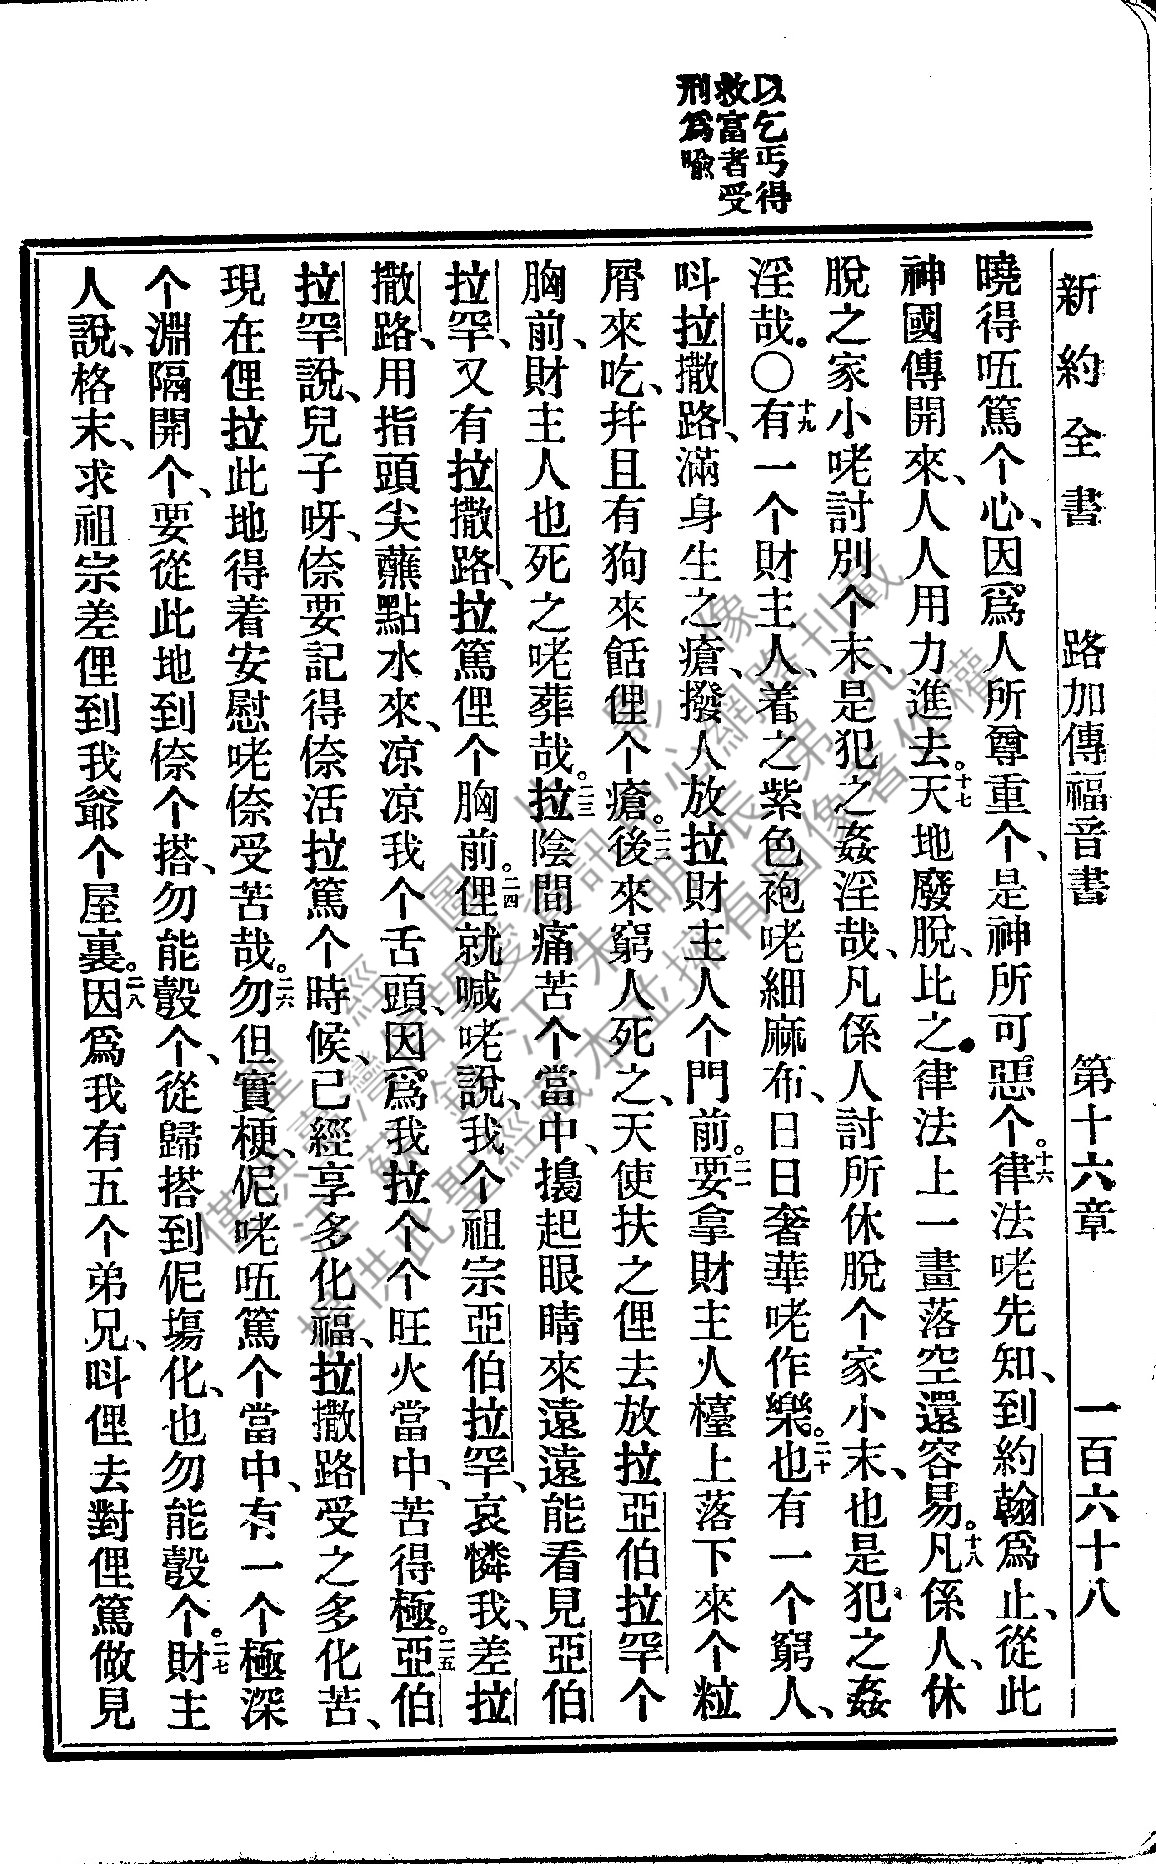 以乞丐得
救富者受
刑爲喻
新約全書 路加傳福音書 第十六章 一百六十八
曉得㕶篤个心、因爲人所尊重个、是神所可惡个。十六律法咾先知、到約翰爲止、從此
神國傳開來、人人用力進去。十七天地廢脫、比之律法上一畫落空還容易。十八凡係人、休
脫之家小咾討別个末、是犯之姦淫哉、凡係人討所休脫个家小末、也是犯之姦
淫哉。〇十九有一个財主人、着之紫色袍咾細麻布、日日奢華咾作樂。二十也有一个窮人、
呌拉撒路、滿身生之瘡、撥人放拉財主人个門前。二一要拿財主人檯上落下來个粒
屑來吃、幷且有狗來餂俚个瘡。二二後來窮人死之、天使扶之俚去放拉亞伯拉罕个
胸前、財主人也死之咾葬哉。二三拉陰間痛苦个當中、搗起眼睛來遠遠能看見亞伯
拉罕、又有拉撒路、拉篤俚个胸前。二四俚就喊咾說、我个祖宗亞伯拉罕、哀憐我、差拉
撒路、用指頭尖蘸點水來、凉凉我个舌頭、因爲我拉个个旺火當中、苦得極。二五亞伯
拉罕說、兒子呀、倷要記得倷活拉篤个時候、已經享多化福、拉撒路受之多化苦、
現在俚拉此地得着安慰咾倷受苦哉。二六勿但實梗、伲咾㕶篤个當中、有一个極深
个淵隔開个、要從此地到倷个搭、勿能彀个、從歸搭到伲塲化、也勿能彀个。二七財主
人說、格末、求祖宗差俚到我爺个屋裏。二八因爲我有五个弟兄、呌俚去對俚篤做見
僅供臺灣信望愛資訊小組網路刊載